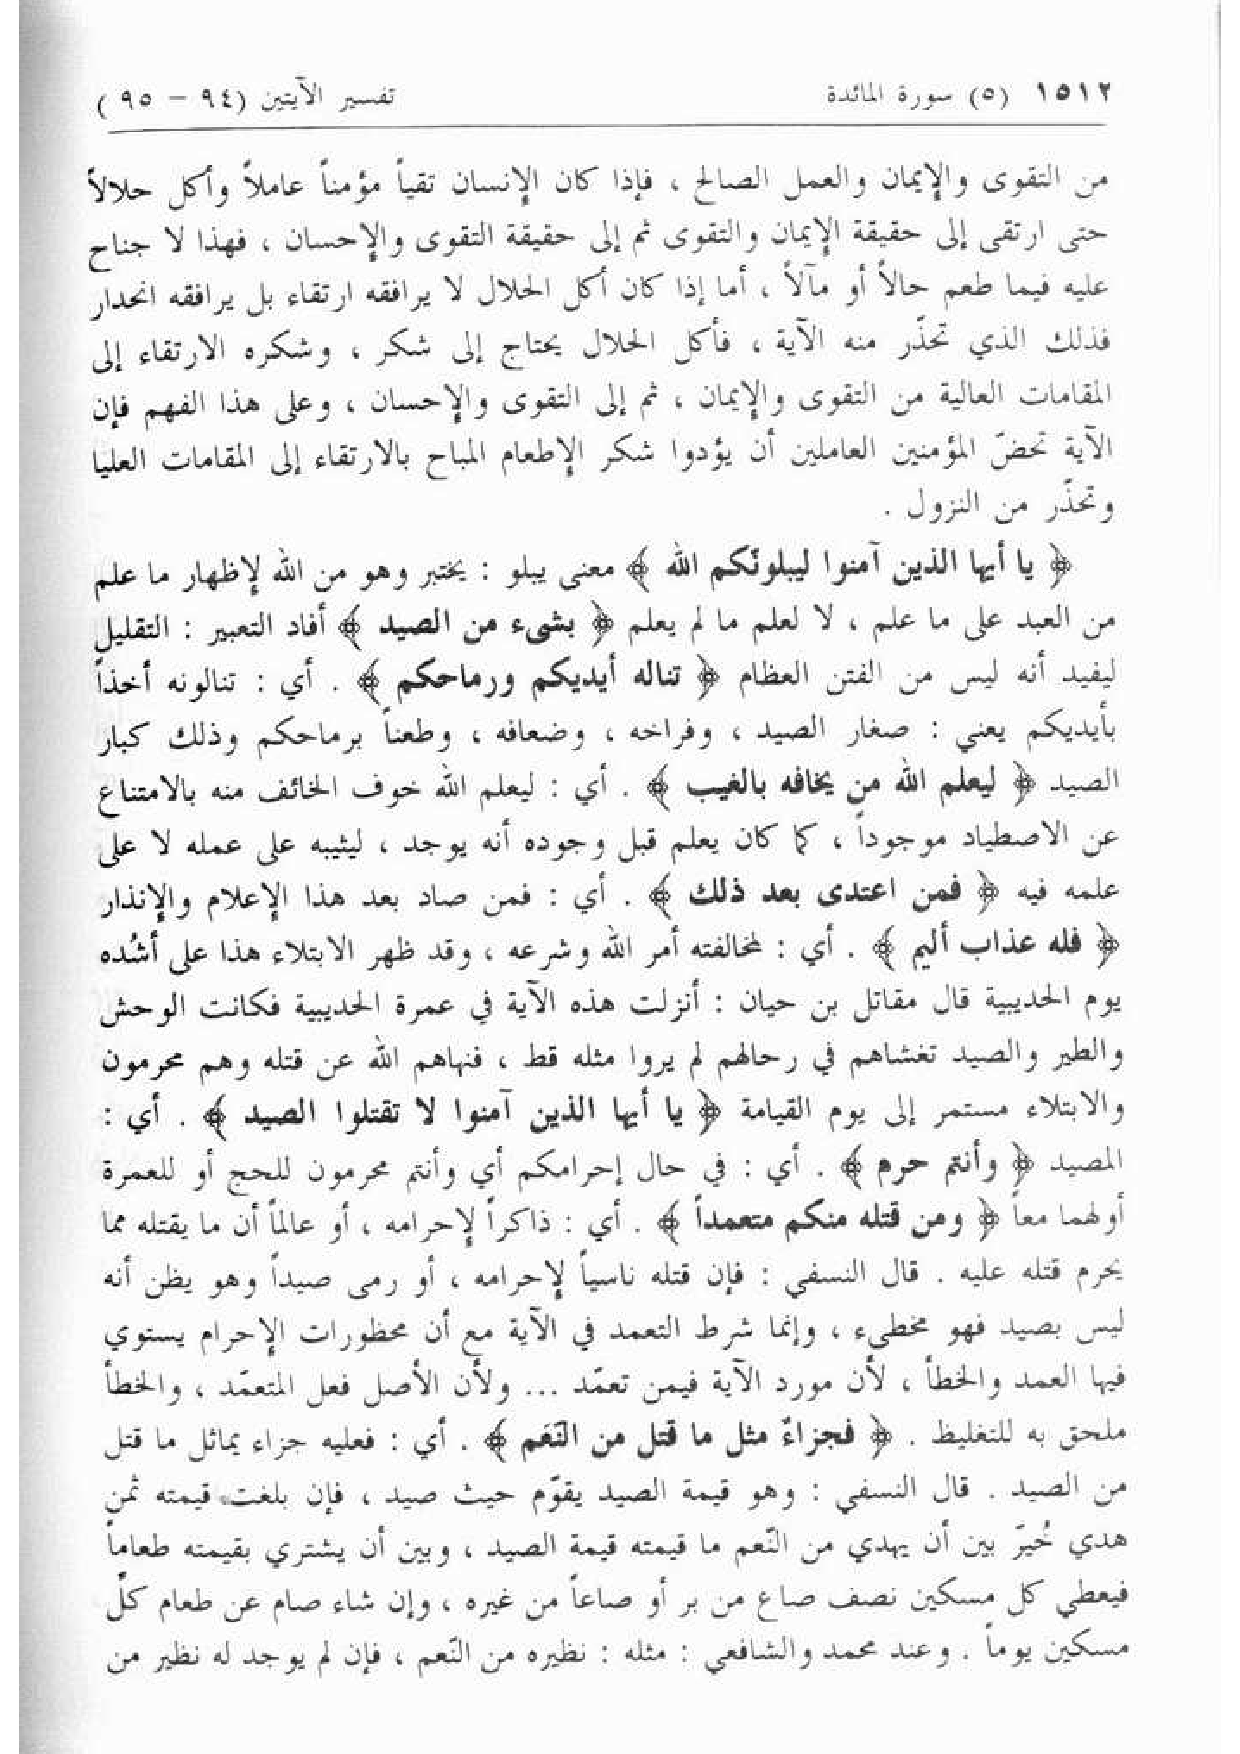 ١٥١٢ (٥) سورة المائدة تفسير الآيتين (٩٤ – ٩٥)
من التقوى والإيمان والعمل الصالح ، فإذا كان الإنسان تقياً مؤمناً عاملاً وأكل حلالاً
حتى ارتقى إلى حقيقة الإيمان والتقوى ثم إلى حقيقة التقوى والإحسان ، فهذا لا جناح
عليه فيما طعم حالاً أو مآلاً ، أما إذا كان أكل الحلال لا يرافقه ارتقاء بل يرافقه انحدار
فذلك الذي تحذّر منه الآية ، فأكل الحلال يحتاج إلى شكر ، وشكره الارتقاء إلى
المقامات العالية من التقوى والإيمان ، ثم إلى التقوى والإحسان ، وعلى هذا الفهم فإن
الآية تحضّ المؤمنين العاملين أن يؤدوا شكر الإطعام المباح بالارتقاء إلى المقامات العليا
وتحذّر من النزول .
﴿ يا أيها الذين آمنوا ليبلونّكم الله ﴾ معنى يبلو : يختبر وهو من الله لإظهار ما علم
من العبد على ما علم ، لا لعلم ما لم يعلم ﴿ بشيء من الصيد ﴾ أفاد التعبير : التقليل
ليفيد أنه ليس من الفتن العظام ﴿ تناله أيديكم ورماحكم ﴾ . أي : تنالونه أخذاً
بأيديكم يعني : صغار الصيد ، وفراخه ، وضعافه ، وطعناً برماحكم وذلك كبار
الصيد ﴿ ليعلم الله من يخافه بالغيب ﴾ . أي : ليعلم الله خوف الخائف منه بالامتناع
عن الاصطياد موجوداً ، كما كان يعلم قبل وجوده أنه يوجد ، ليثيبه على عمله لا على
علمه فيه ﴿ فمن اعتدى بعد ذلك ﴾ . أي : فمن صاد بعد هذا الإعلام والإنذار
﴿ فله عذاب أليم ﴾ . أي : لمخالفته أمر الله وشرعه ، وقد ظهر الابتلاء هذا على أشُده
يوم الحديبية قال مقاتل بن حيان : أنزلت هذه الآية في عمرة الحديبية فكانت الوحش
والطير والصيد تغشاهم في رحالهم لم يروا مثله قط ، فنهاهم الله عن قتله وهم محرمون
والابتلاء مستمر إلى يوم القيامة ﴿ يا أيها الذين آمنوا لا تقتلوا الصيد ﴾ . أي :
المصيد ﴿ وأنتم حرم ﴾ . أي : في حال إحرامكم أي وأنتم محرمون للحج أو للعمرة
أولهما معاً ﴿ ومن قتله منكم متعمداً ﴾ . أي : ذاكراً لإحرامه ، أو عالماً أن ما يقتله مما
يحرم قتله عليه . قال النسفي : فإن قتله ناسياً لإحرامه ، أو رمى صيداً وهو يظن أنه
ليس بصيد فهو مخطىء ، وإنما شرط التعمد في الآية مع أن محظورات الإحرام يستوي
فيها العمد والخطأ ، لأن مورد الآية فيمن تعمّد ... ولأن الأصل فعل المتعمّد ، والخطأ
ملحق به للتغليظ . ﴿ فجزاءٌ مثل ما قتل من النّعَم ﴾ . أي : فعليه جزاء يماثل ما قتل
من الصيد . قال النسفي : وهو قيمة الصيد يقوّم حيث صيد ، فإن بلغت قيمته ثمن
هدي خُيرّ بين أن يهدي من النّعم ما قيمته قيمة الصيد ، وبين أن يشتري بقيمته طعاماً
فيعطي كل مسكين نصف صاع من بر أو صاعاً من غيره ، وإن شاء صام عن طعام كلّ
مسكين يوماً . وعند محمد والشافعي : مثله : نظيره من النّعم ، فإن لم يوجد له نظير من